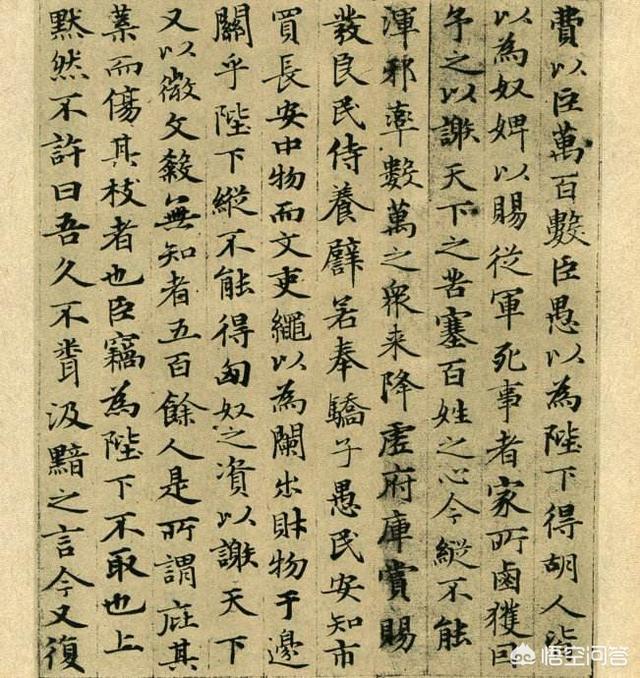 費以臣萬百數臣愚以為陛下得胡人皆
以為奴婢以賜從軍死事者家所鹵獲因
予之以謝天下之苦塞百姓之心今縱不能
渾邪率數萬之衆来降虛府庫賞賜
發良民侍養譬若奉驕子愚民安知市
買長安中物而文吏繩以為闌出財物于邊
關乎陛下縱不能得匈奴之資以謝天下
又以微文殺無知者五百餘人是所謂庇其
葉而傷其枝者也臣竊為陛下不取也上
默然不許曰吾久不聞汲黯之言今又復
悟空问答